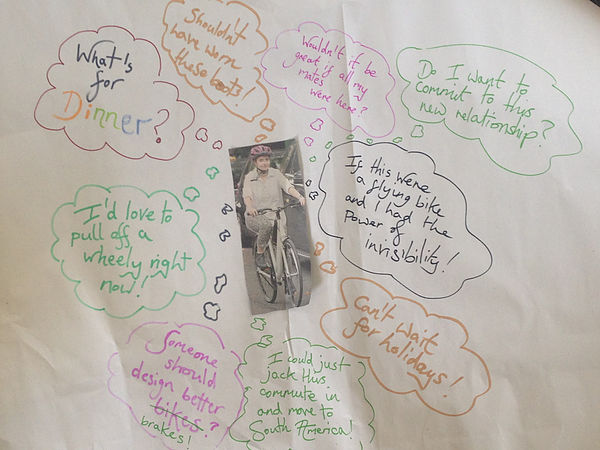 What's
for
Dinner?
Shouldn't
have worn
these boots!
Wouldn't it be
great if all my
mates
were here?
Do I want to
commit to this
new relationship?
If this were
a flying bike
and I had the
power of
invisibility!
I'd love to
pull off a
wheely right
now!
Can't wait
for holidays!
Someone
should
design better
bikes?
brakes!
I could just
jack this
commute in
and move to
South America!